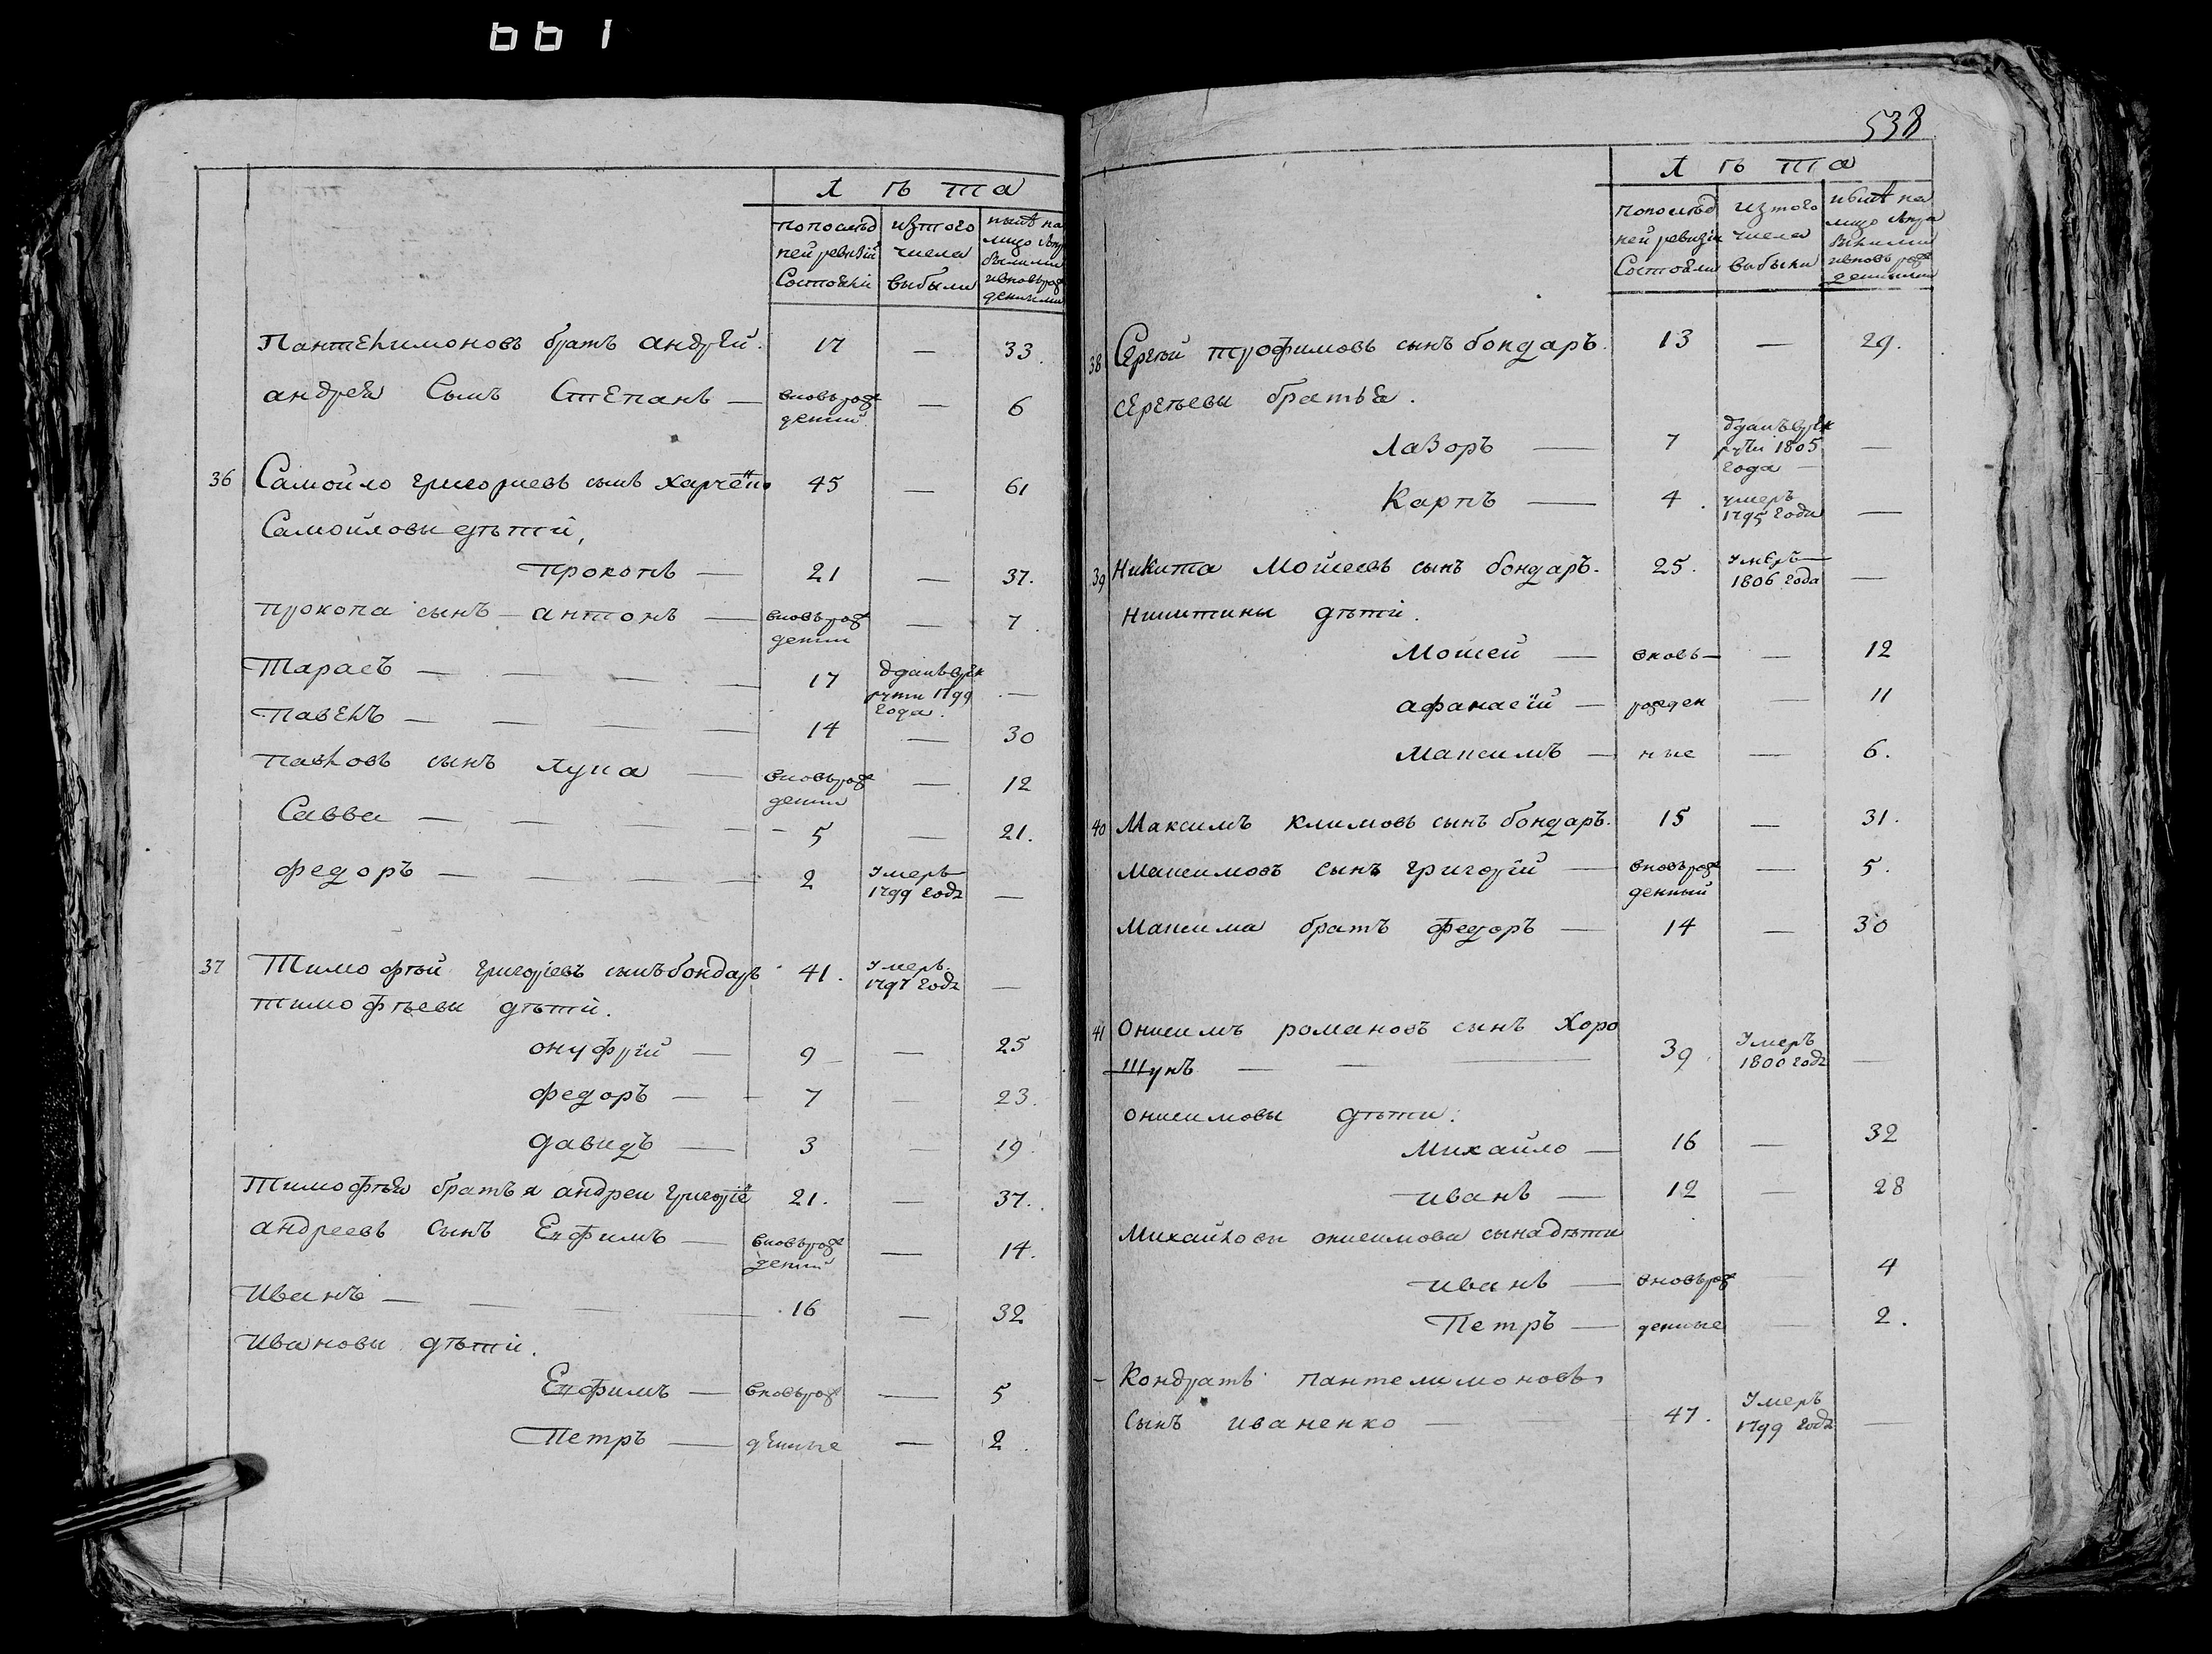 661
Лѣта
по послѣд ней ревизіи Состояли
из того числа выбыли
ныне на лицо
Пантелимоновъ братъ андрей. 17 — 33.
андрея Сынъ Степанъ — вновь рож денный — 6
36 Самойло григориевъ сынъ харченко 45 — 61
Самойловы дѣти,
прокопъ — 21 — 37.
прокопа сынъ — антонъ — вновь рож денны — 7.
Тарасъ — 17 Зданъ в рек руты 1799 года. —
павелъ — 14 — 30
павловъ сынъ лука — вновь рож денны — 12
Савва — 5 — 21.
федоръ — 2 Умеръ 1799 года —
37 Тимофѣй григорьевъ сынъ бондаръ 41. Умеръ 1797 года —
тимофѣевы дѣти.
онуфрій — 9 — 25
федоръ — 7 — 23.
давидъ — 3 — 19.
Тимофѣя братья андреи григорье 21. — 37.
андреевъ сынъ Енфимъ — вновь рож денны — 14.
Иванъ — 16 — 32
Ивановы дѣти.
Енфимъ — вновь рож — 5
Петръ — денные — 2.
538
Лѣта
по послѣд ней ревизіи Состояли
из того числа выбыли
ныне на лицо
38 Сергѣй трофимовъ сынъ бондаръ. 13 — 29.
сергѣевы братья.
Лазоръ — 7 Зданъ в рек руты 1805 года —
Карпъ — 4. умеръ 1795 года —
39 Никита Мойсеевъ сынъ бондаръ. 25. Умеръ 1806 года —
Никитины дѣти.
Мойсей — вновь — 12
афанасій — рожден — 11
Максимъ — ные — 6.
40 Максимъ климовъ сынъ бондаръ. 15 — 31.
Максимовъ сынъ григорій — вновь рож денный — 5.
Максима братъ федоръ — 14 — 30
41 Онисимъ романовъ сынъ Хоро
шунъ — 39. Умеръ 1800 года —
онисимовы дѣти:
Михайло — 16 — 32
иванъ — 12 — 28
Михайловы онисимова сына дѣти
иванъ — вновь рож — 4
Петръ — денные — 2.
– Кондратъ пантелимоновъ
сынъ иваненко — 47. Умеръ 1799 года —